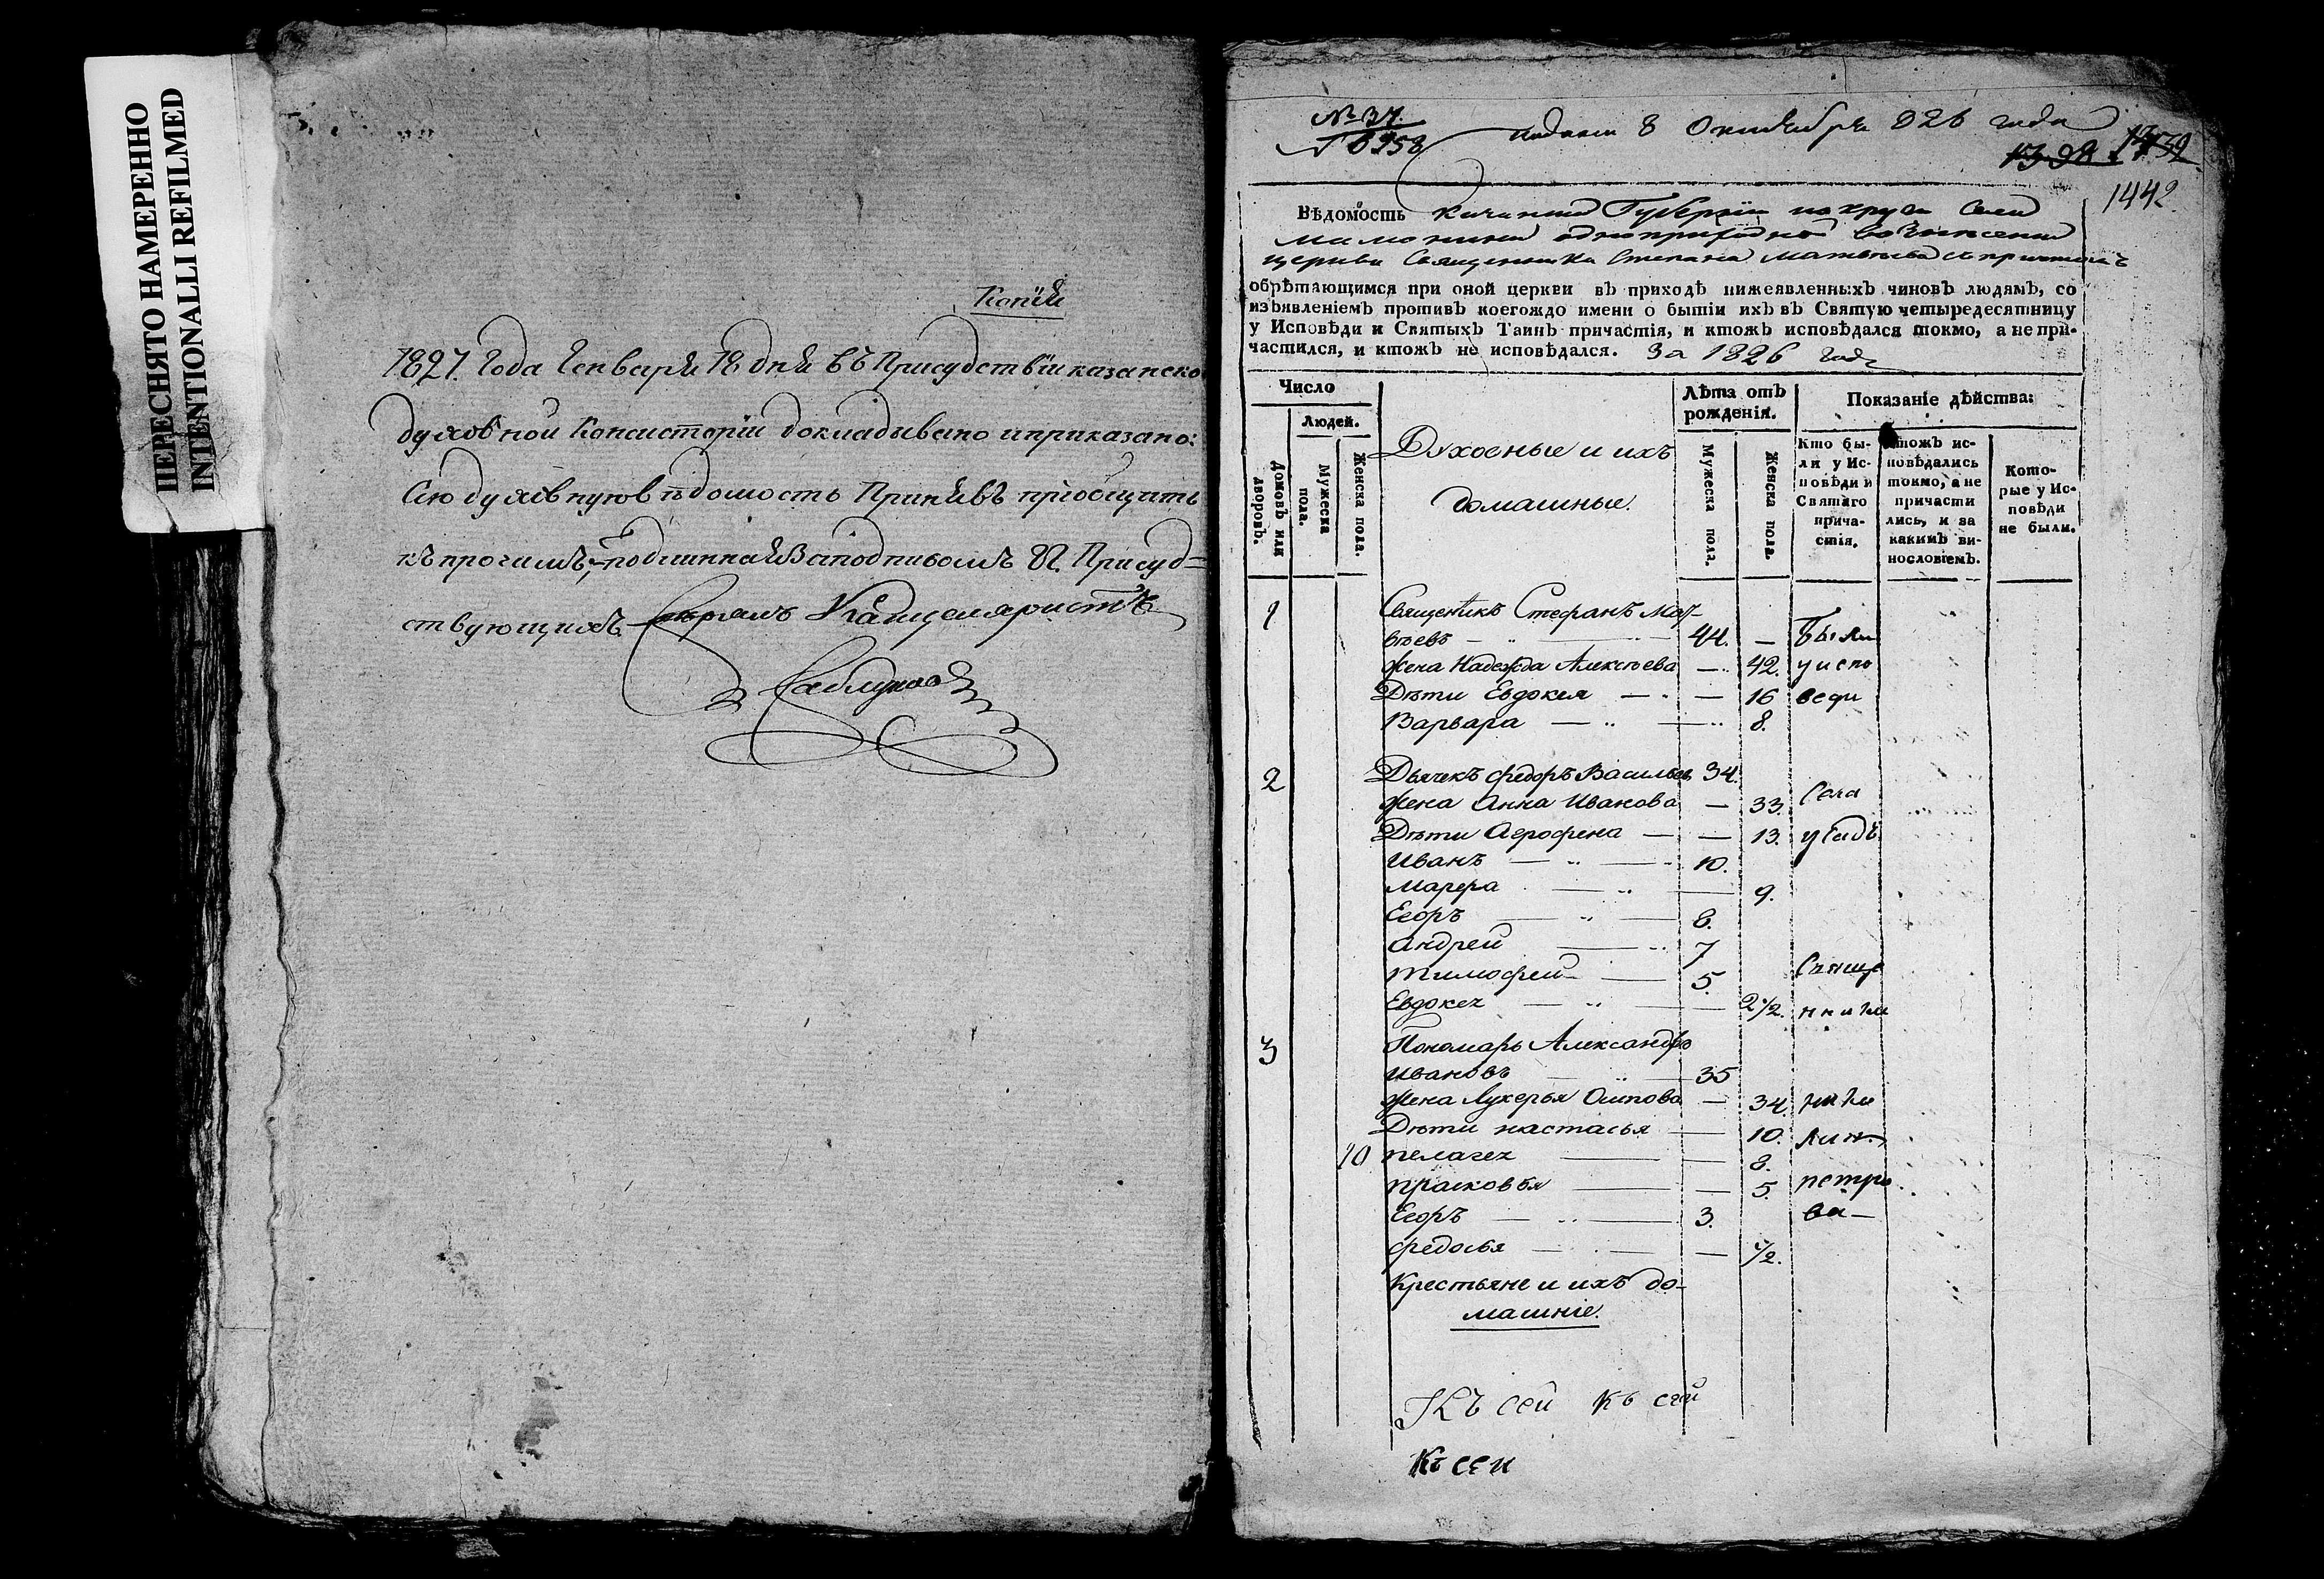 ПЕРЕСНЯТО НАМЕРЕННО
INTENTIONALLI REFILMED
Копія
1827. Года Генваря 18 дня въ Присудствіи казанско
духовной Консисторіи докладывано и приказано:
Сію духовную вѣдомость Принявъ пріобщить
къ прочимъ, подлинная за подписомъ Гг. Присуд=
ствующихъ Канцеляристъ
№ 37.
8 Октября 826 года
1442
Вѣдомость Губерніи округи Села
церкви Священника Степана Матвеева съ
обрѣтающимся при оной церкви въ приходѣ нижеявленныхъ чиновъ людямъ, со
изъявленіемъ противъ коегождо имени о бытіи ихъ въ Святую четыредесятницу
у Исповѣди и Святыхъ Таинъ причастія, и ктожъ исповѣдался токмо, а не при-
частился, и ктожъ не исповѣдался. За 1826 годъ
Число
Людей.
Домовъ или дворовъ.
Мужеска пола.
Женска пола.
Духовные и ихъ
домашные.
Лѣта отъ рожденія.
Мужеска пола.
Женска пола.
Показаніе дѣйства:
Кто бы-
ли у Ис-
повѣди и
Святаго
прича-
стія.
ктожъ ис-
повѣдались
токмо, а не
причасти
лись, и за
какимъ ви-
нословіемъ.
Кото-
рые у Ис-
повѣди
не были.
1 Священикъ Стефанъ Мат-
вѣевъ 44. — были
жена Надежда Алексѣева — 42. у испо
Дѣти Евдокея — 16 веди
Варвара — 8.
2 Дьячекъ Федоръ Васильевъ 34.
жена Анна Иванова — 33. Села
Дѣти Агрофена — 13.
Иванъ — 10.
Марфа — 9.
Егоръ — 8.
Андрей — 7
Тимофей — 5. Свяще
Евдокея — 2 1/2. нника
3 Пономарь Александръ
Ивановъ — 35
жена Лукерья Осипова — 34
Дѣти настасья — 10.
10 пелагея — 8.
прасковья — 5. петро
Егоръ — 3. ва —
федосья — 1/2.
Крестьяне и ихъ до-
машніе.
Къ сей къ сей
Къ сеи